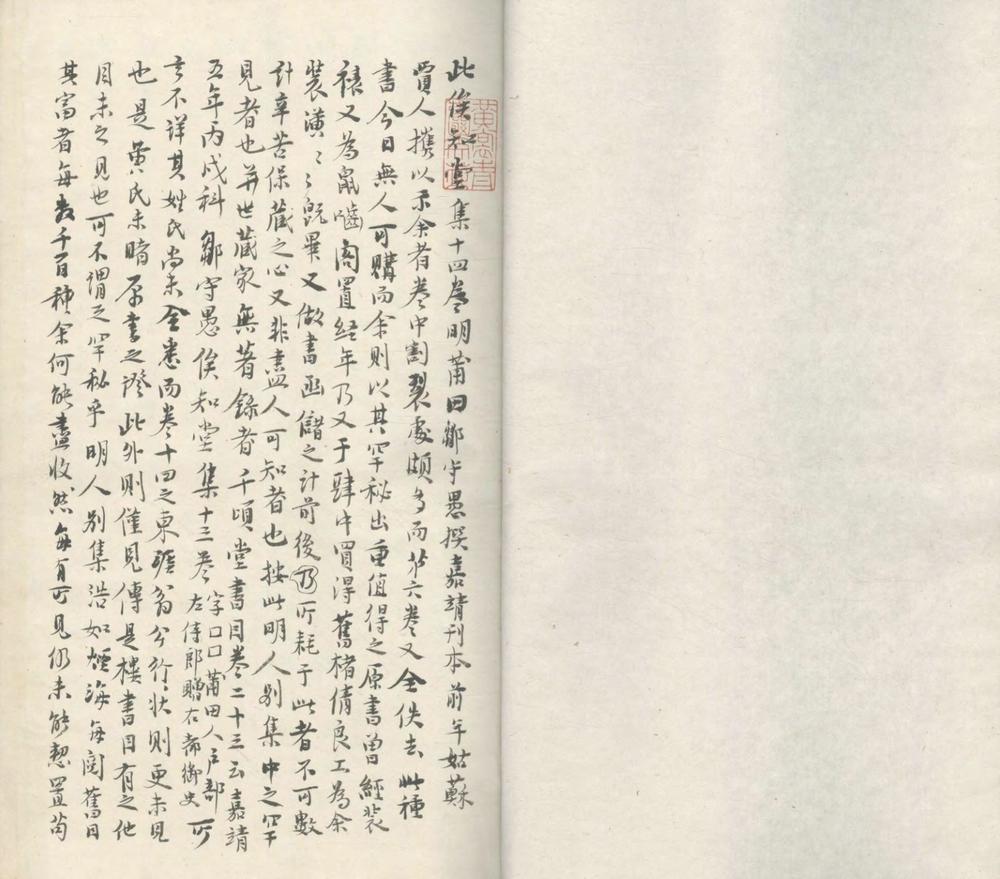 此俟知堂集十四卷明莆田鄒守愚撰嘉靖刊本前年姑蘇
賈人攜以示余者卷中割裂處頗多而第六卷又全佚去此種
書今日無人可購而余則以其罕秘出重值得之原書曾經裝
裱又為鼠嚙閣置經年乃又于肆中買得舊楮倩良工為余
裝潢〻既畢又做書函儲之計前後乃所耗于此者不可數
計辛苦保藏之心又非盡人可知者也按此明人別集中之罕
見者也並世藏家無著錄者千頃堂書目卷二十三云嘉靖
五年丙戌科鄒守愚俟知堂集十三卷字口口莆田人戶部左侍郎贈右都御史所
言不詳其姓氏尚未全悉而卷十四之東翁公行狀則更未見
也是黃氏未睹原書之證此外則僅見傳是樓書目有之他
目未之見也可不謂之罕秘乎明人別集浩如煙海每閱舊目
其富者每數千百種余何能盡收然每有可見仍未能恝置苟
黃裳青囊文苑